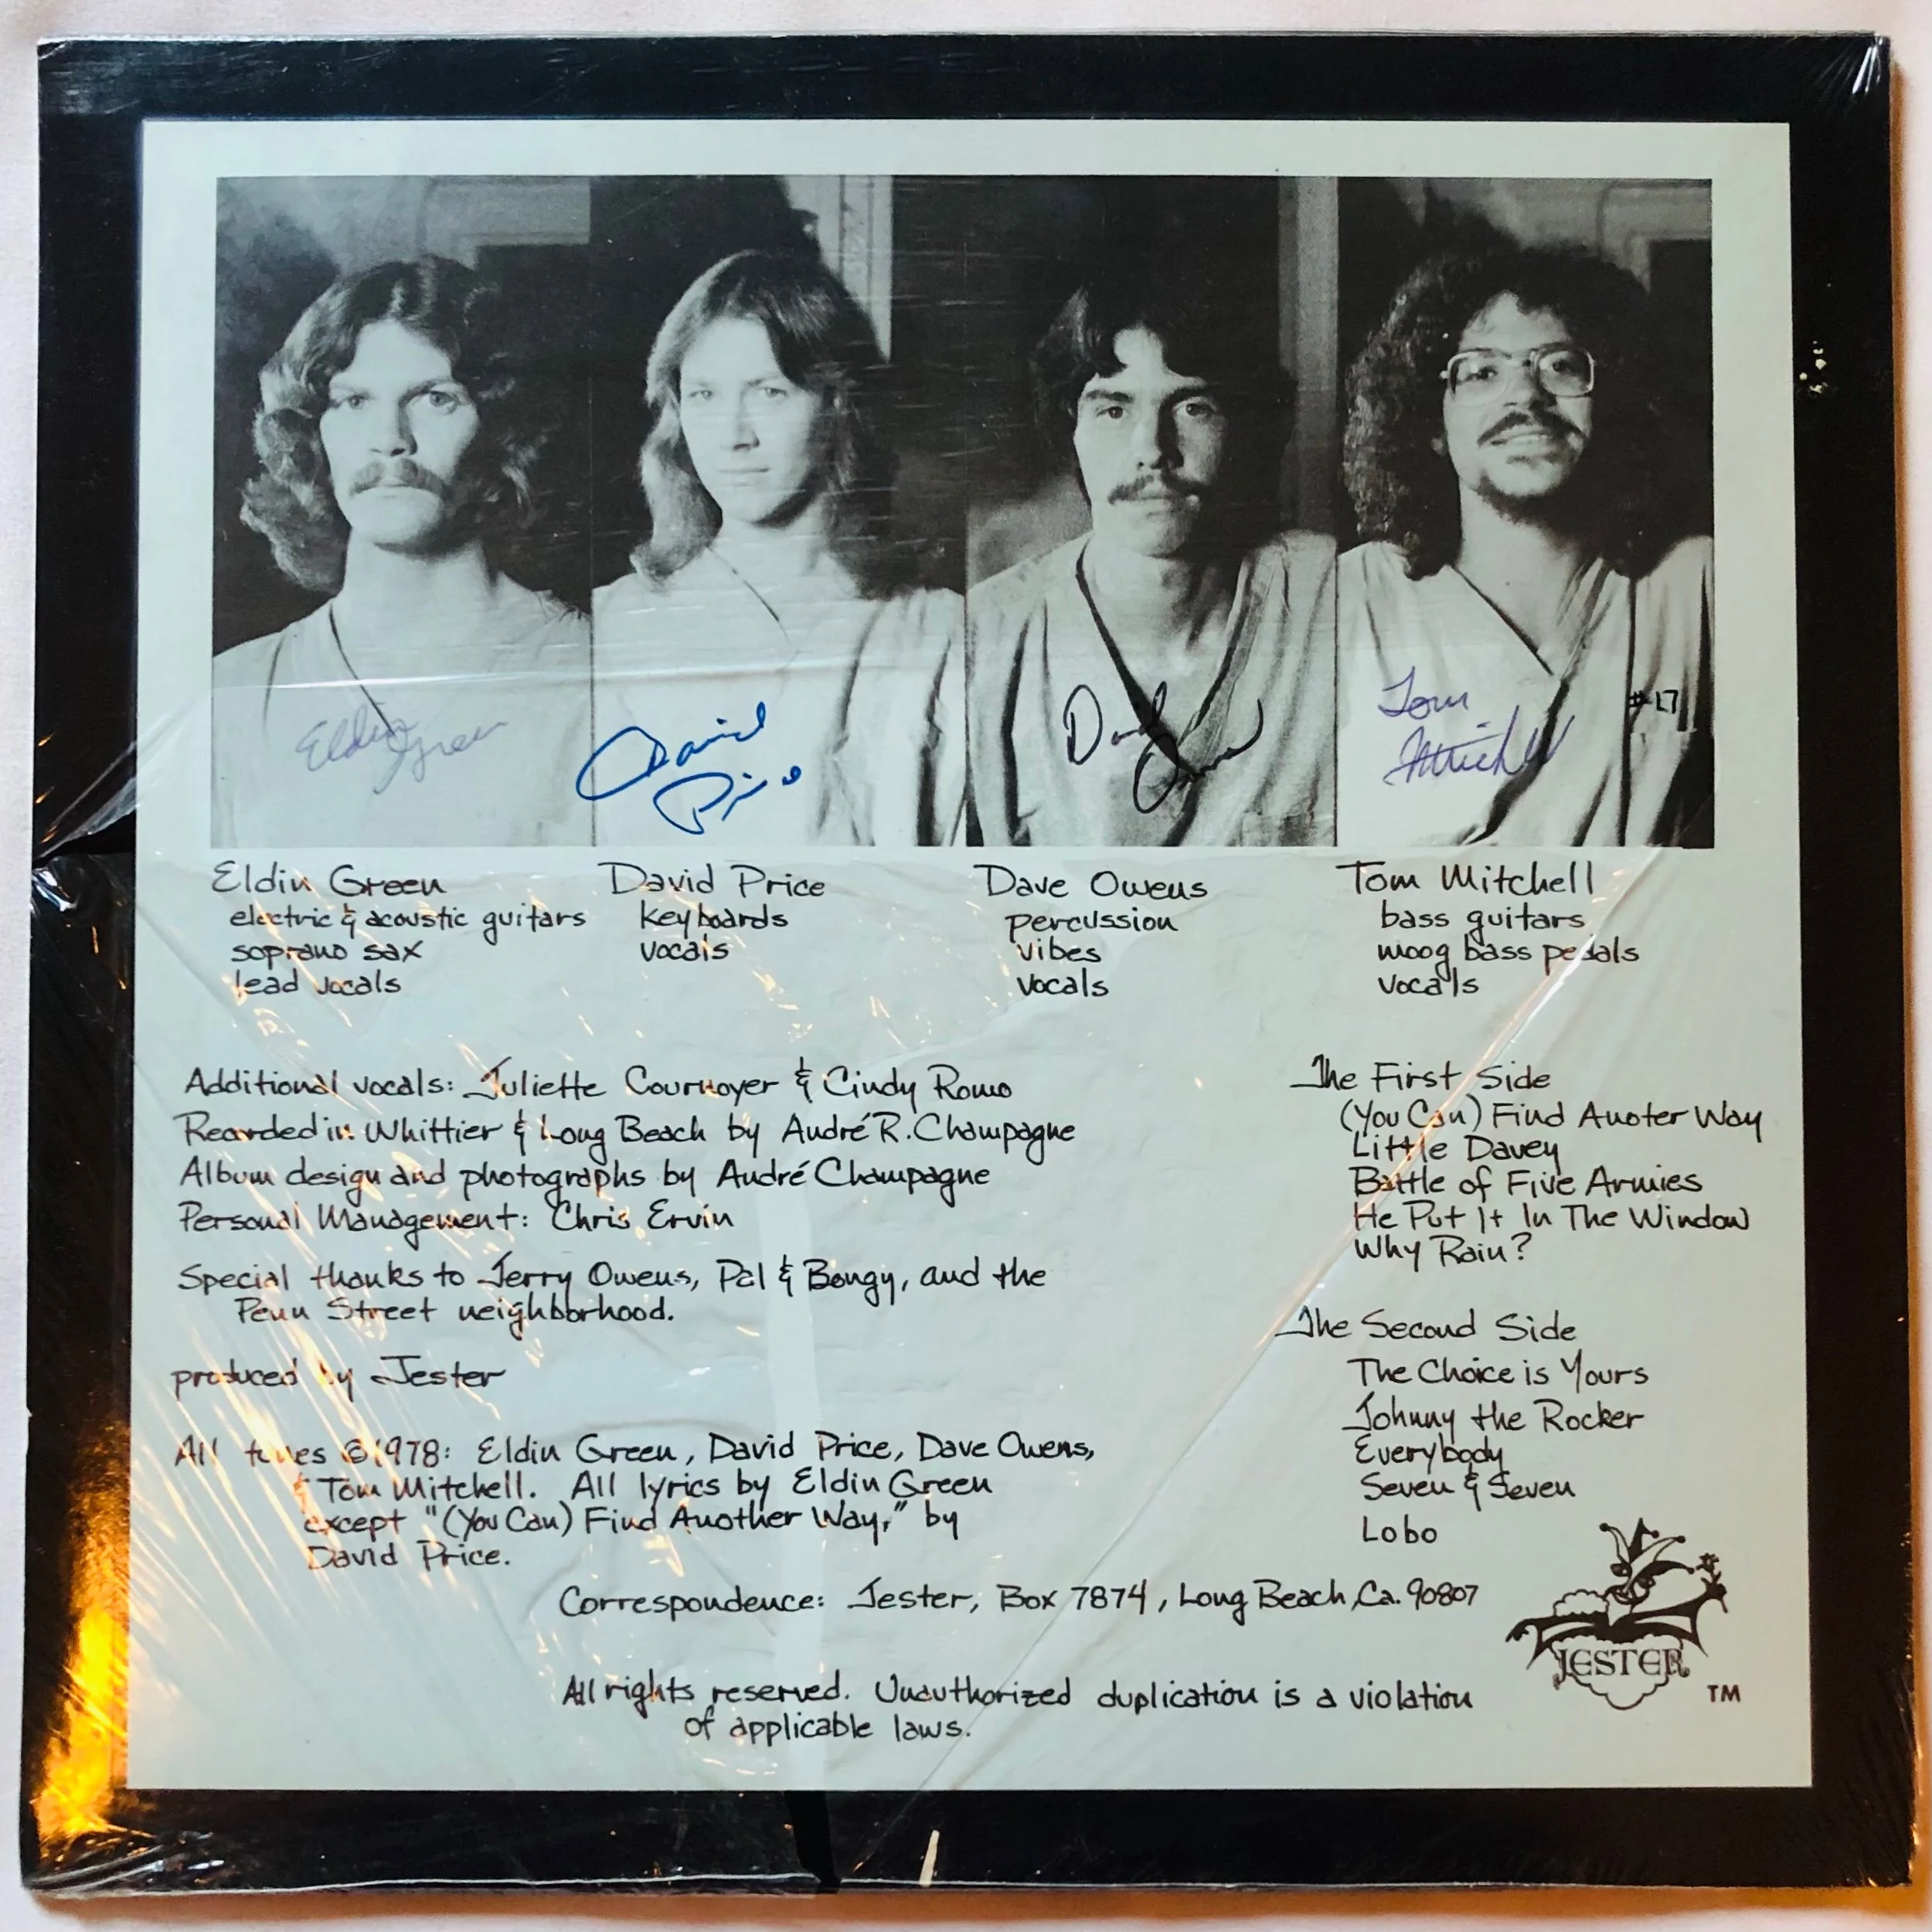 Eldin Green
David Price
David Owens
Tom Mitchell
#17
Eldin Green
electric & acoustic guitars
soprano sax
lead vocals
David Price
keyboards
vocals
Dave Owens
percussion
vibes
vocals
Tom Mitchell
bass guitars
moog bass pedals
vocals
Additional vocals: Juliette Cournoyer & Cindy Romo
Recorded in Whittier & Long Beach by André R. Champagne
Album design and photographs by André Champagne
Personal Management: Chris Ervin
Special thanks to Jerry Owens, Pal & Bongy, and the
Penn Street neighborhood.
produced by Jester
All tunes ©1978: Eldin Green, David Price, Dave Owens,
& Tom Mitchell. All lyrics by Eldin Green
except "(You Can) Find Another Way," by
David Price.
The First Side
(You Can) Find Anoter Way
Little Davey
Battle of Five Armies
He Put It In The Window
Why Rain?
The Second Side
The Choice is Yours
Johnny the Rocker
Everybody
Seven & Seven
Lobo
Correspondence: Jester, Box 7874, Long Beach, Ca. 90807
JESTER
TM
All rights reserved. Unauthorized duplication is a violation
of applicable laws.